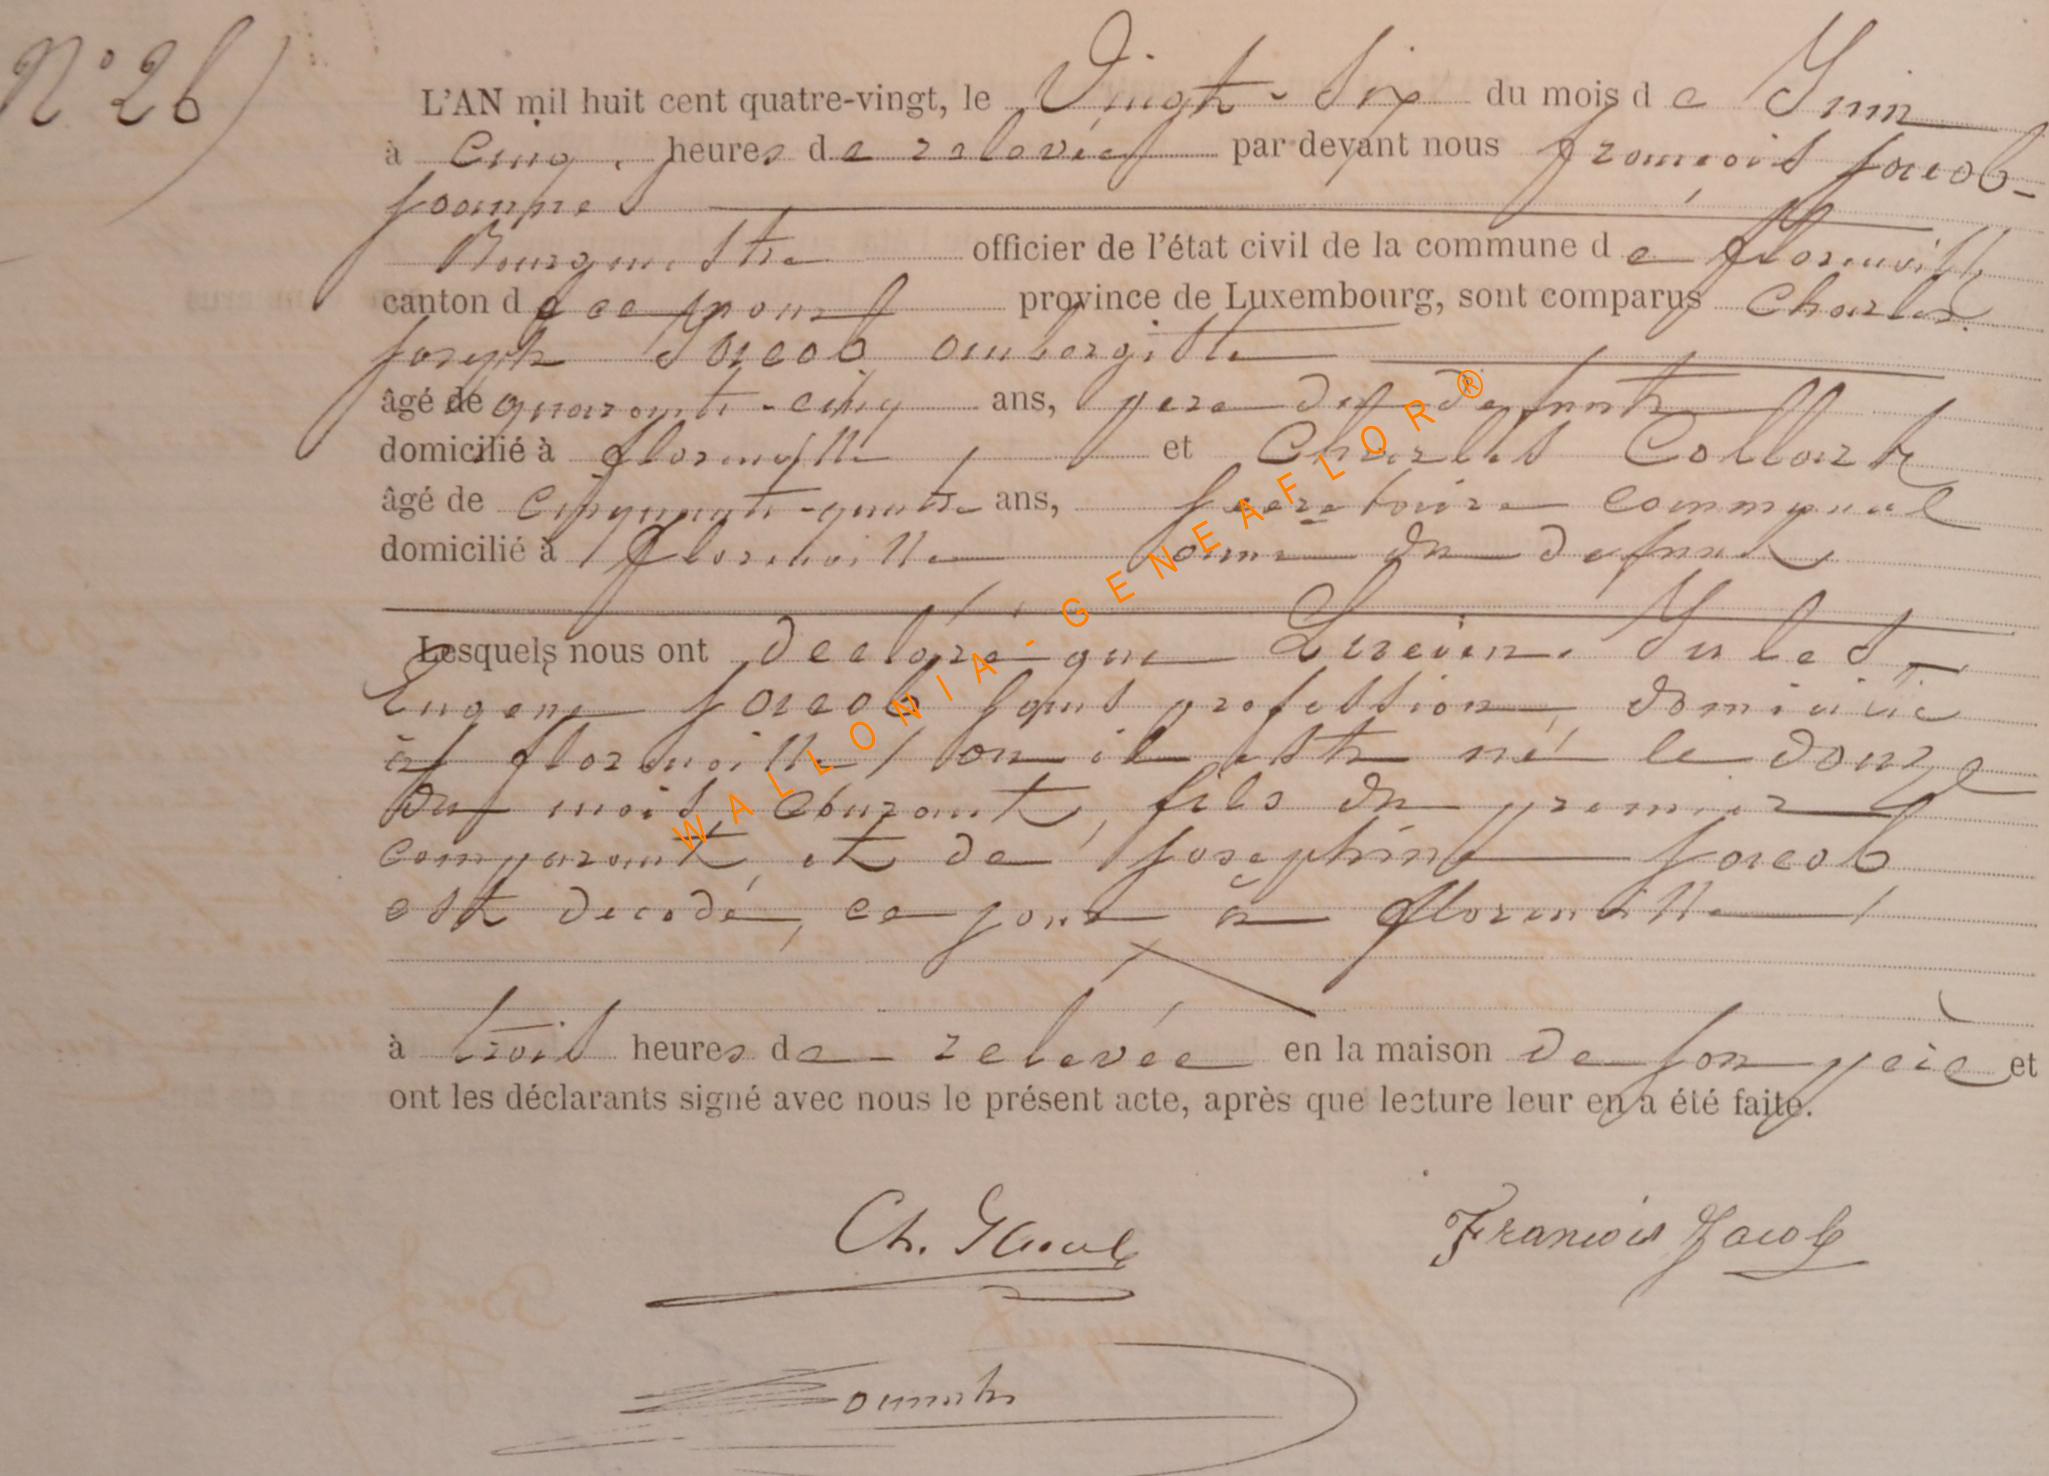 N° 26
L'AN mil huit cent quatre-vingt, le Vingt-Six du mois de Juin
à Cinq heures de relevée par devant nous françois Jacob-
Jeanne
Bourgmestre officier de l'état civil de la commune de florenville
canton de province de Luxembourg, sont comparus Charles
Joseph Jacob aubergiste
âgé de quarante-cinq ans, père du défunt
domicilié à florenville et Charles Collart
âgé de cinquante-quatre ans, secretaire communal
domicilié à florenville ami du defunt
Lesquels nous ont declaré que Lucien Jules
Eugène Jacob sans profession, domicilié
à florenville, ou il est né le douze
du mois courant, fils du premier
comparant et de Josephine Jacob
est decedé, ce jour à florenville
à trois heures de relevée en la maison de son père et
ont les déclarants signé avec nous le présent acte, après que lecture leur en a été faite.
Ch. Jacob François Jacob
WALLONIA-GENEAFLOR®